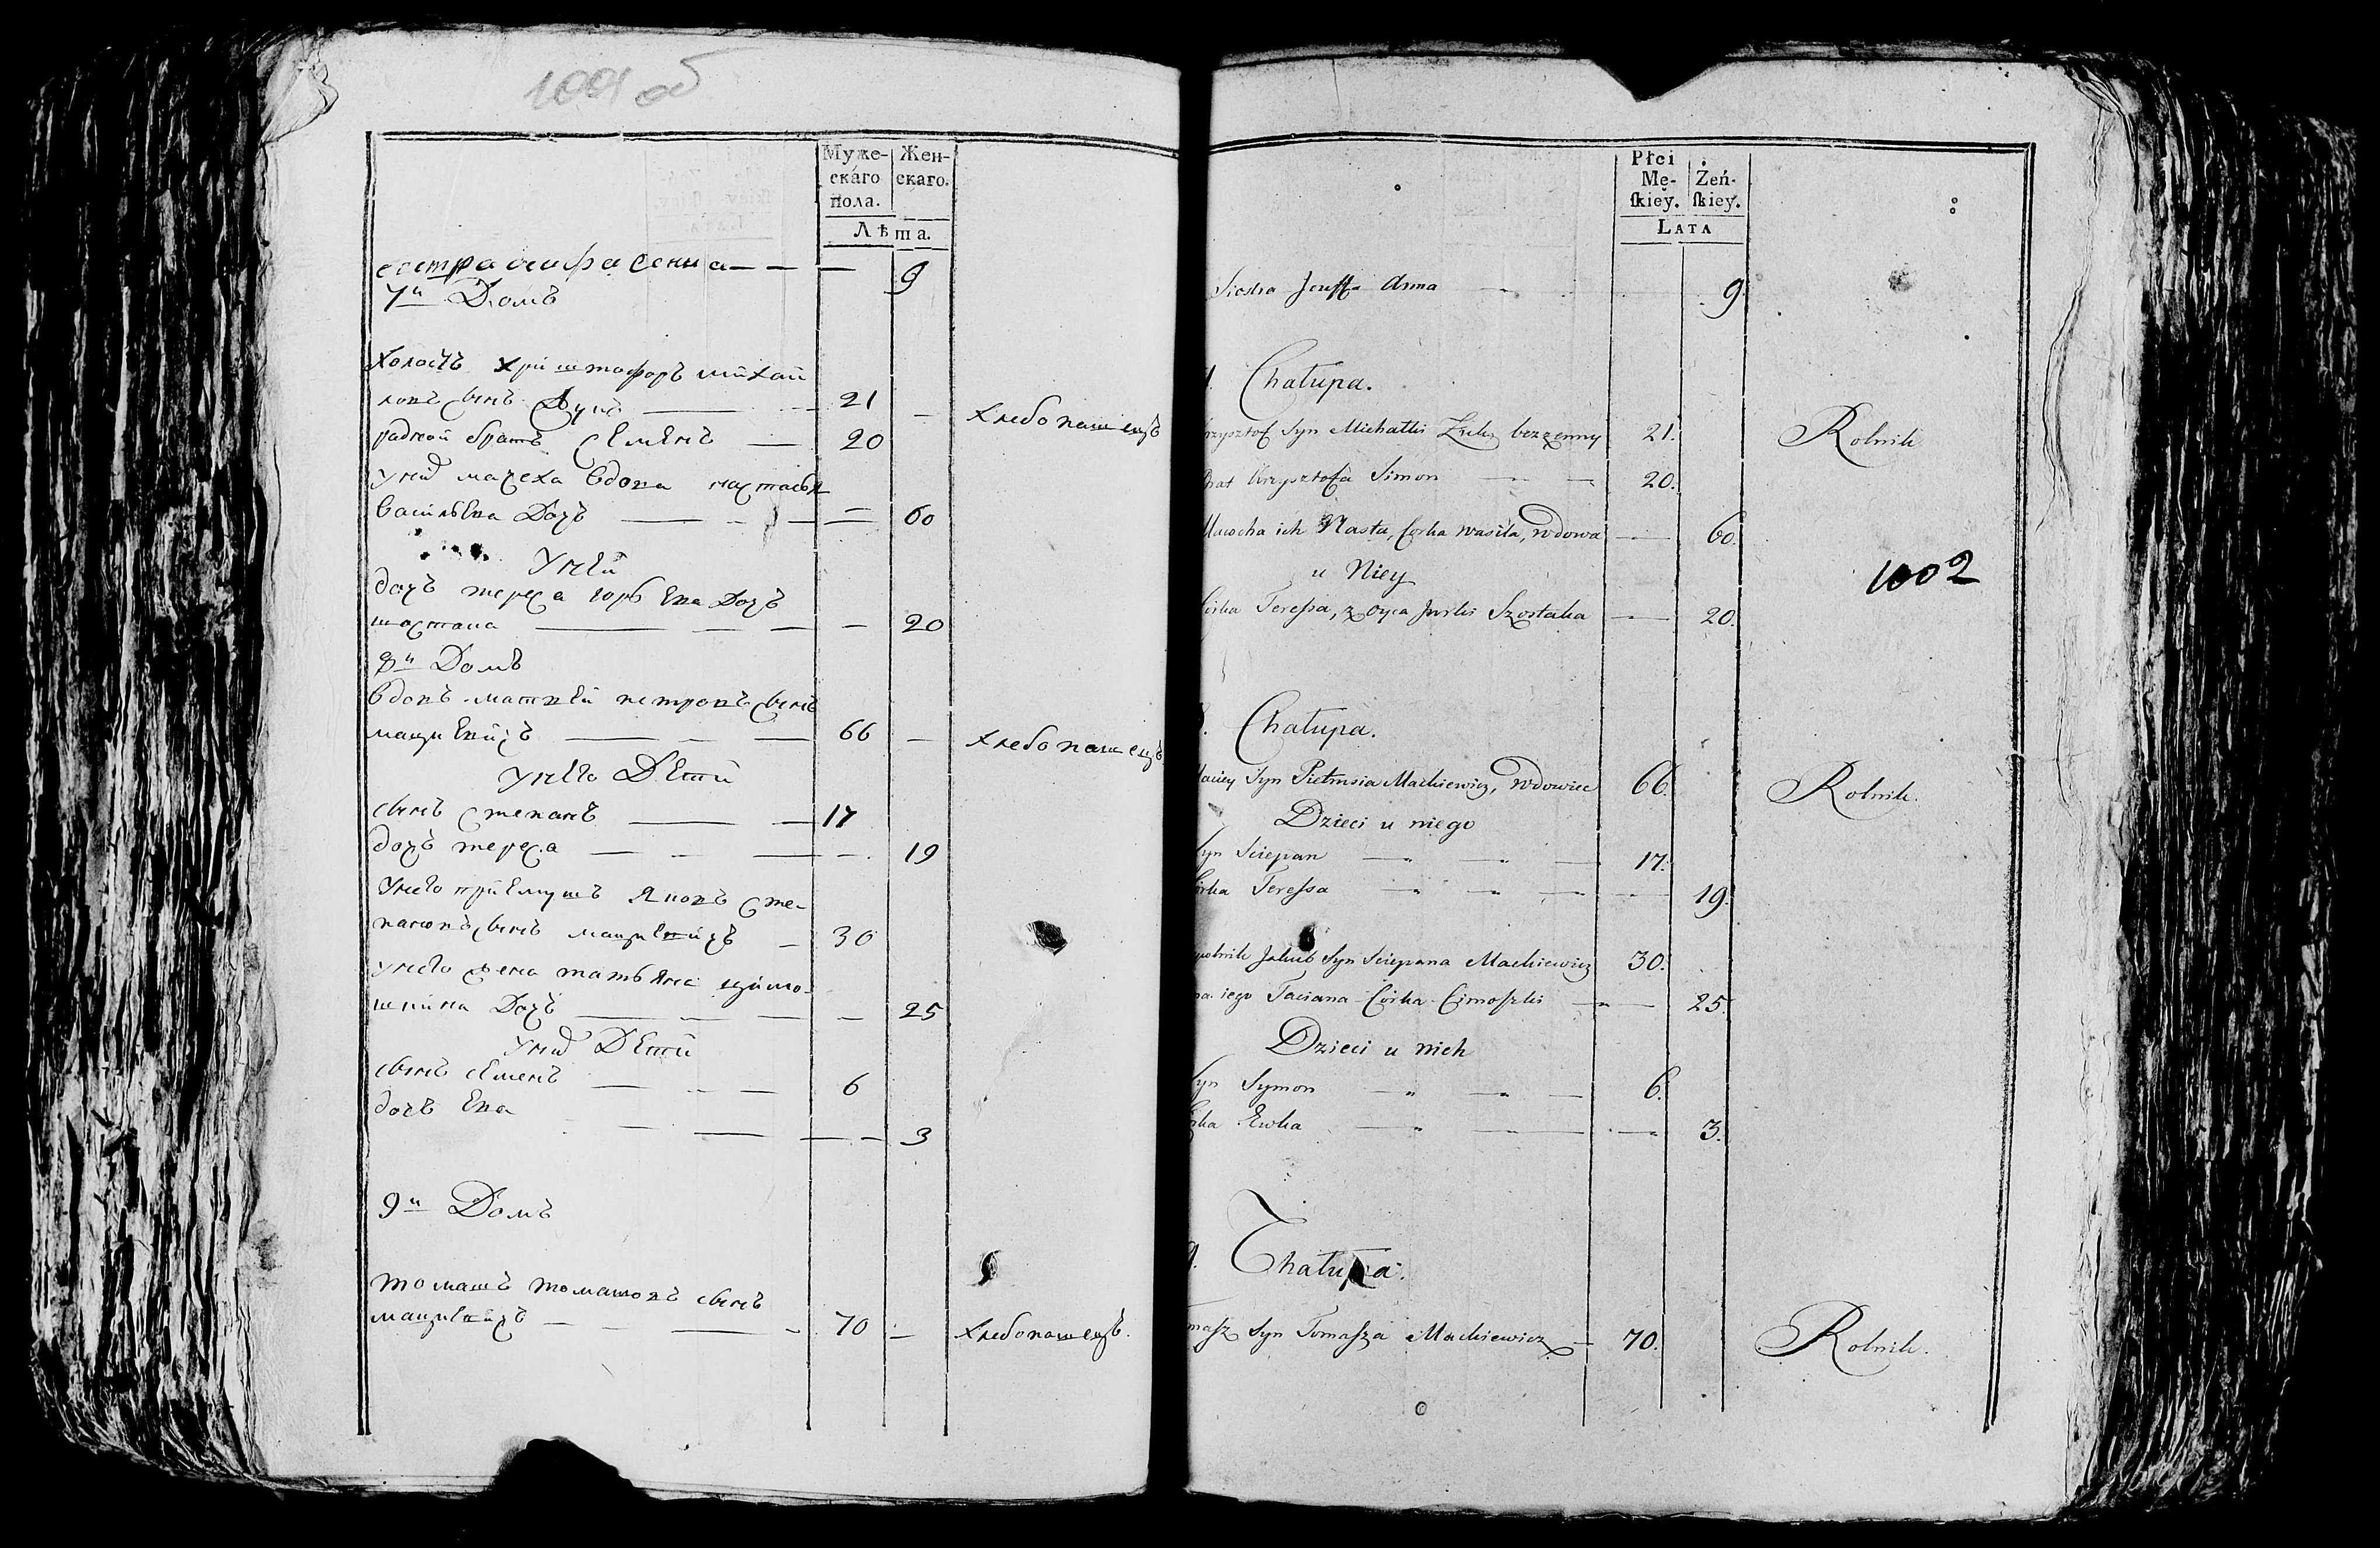 1001 об
Муже-
скаго
пола.
Жен-
скаго.
Лѣта.
сестра 9
7й Домъ
холостъ хриштофоръ михай
ловъ сынъ 21 хлебопашецъ
радной братъ семенъ 20
унихъ мачеха вдова настасья
васильева дочь 60
у ней
дочь тереса юрьева дочь
шостака 20
8й Домъ
вдовъ матвей петровъ сынъ
мацкевичъ 66 хлебопашецъ
унего дети
сынъ степанъ 17
дочь тереса 19
унего приемышъ яковъ сте-
пановъ сынъ мацкевичъ 30
унего жена татьяна цимо-
шкина дочь 25
унихъ дети
сынъ семенъ 6
дочь ева 3
9й Домъ
томашъ томашовъ сынъ
мацкевичъ 70 хлебопашецъ.
Płci
Mę-
ſkiey.
Żeń-
ſkiey.
LATA
Siostra Anna 9.
Chałupa.
Krzysztof Syn Michałki bezżenny 21. Rolnik
Brat Krzysztofa Simon 20.
Macocha ich Nasta, Corka wasila, wdowa 60.
u Niey
1002
Corka Teressa, z oyca Jurki Szostaka 20.
8. Chałupa.
Maciey Syn Pietrusia Mackiewicz, wdowiec 66. Rolnik.
Dzieci u niego
Syn Sciepan 17.
Corka Teressa 19.
Jakub Syn Sciepana Mackiewicz 30.
iego Taciana Córka Cimoszki 25.
Dzieci u nich
Syn Symon 6.
Corka Ewka 3.
9. Chałupa.
Tomasz Syn Tomasza Mackiewicz 70. Rolnik.